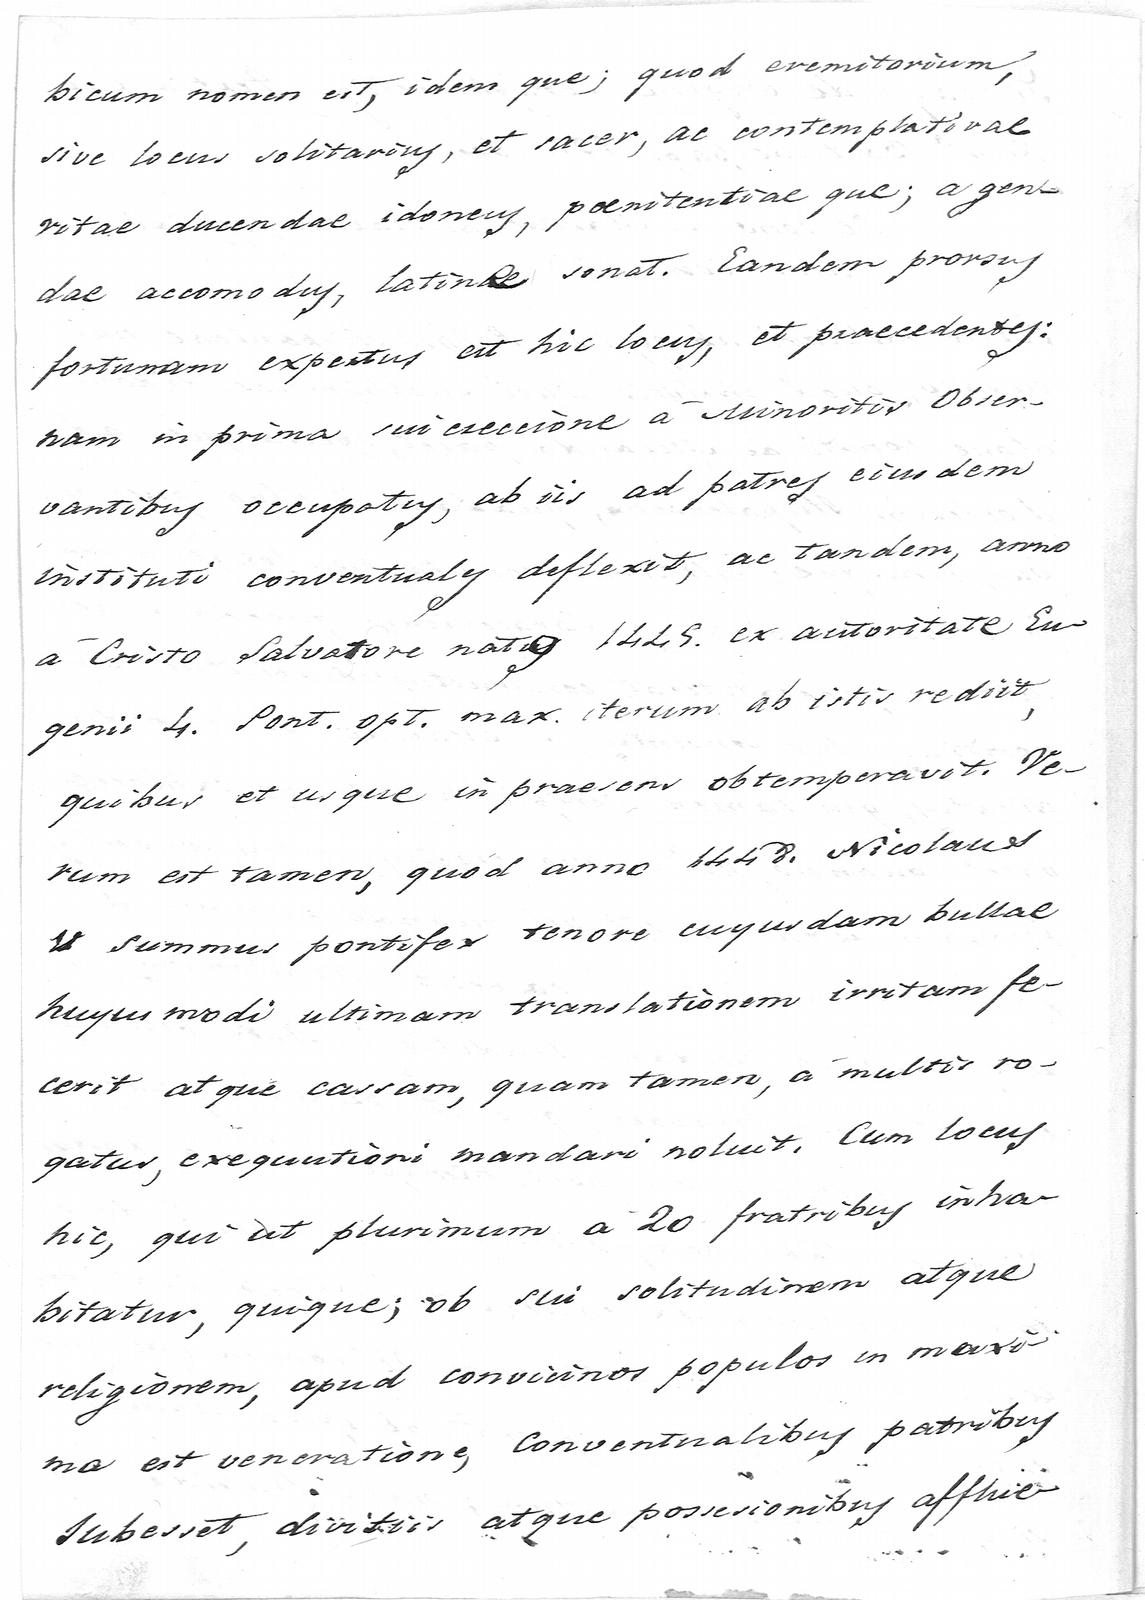 bicum nomen est, idem que; quod eremitorium,
sive locus solitarius, et sacer, ac contemplativae
vitae ducendae idoneus, poenitentiae que; a gen-
dae accomodus, latine sonat. Eandem prorsus
fortunam expertus est hic locus, et praecedentes:
nam in prima sui ereccione a Minoritis Obser-
vantibus occupatus, ab iis ad patres eiusdem
instituti conventuales deflexit, ac tandem, anno
a Cristo Salvatore natus 1445. ex autoritate Eu-
genii 4. Pont. opt. max. iterum ab istis rediit,
quibus et usque in praesens obtemperavit. Ve-
rum est tamen, quod anno 1448. Nicolaus
V summus pontifex tenore cuyusdam bullae
huyusmodi ultimam translationem irritam fe-
cerit atque cassam, quam tamen, a multis ro-
gatus, exequutioni mandari noluit. Cum locus
hic, qui ut plurimum a 20 fratribus inha-
bitatur, quique; ob sui solitudinem atque
religionem, apud convicinos populos in maxi-
ma est veneratione, Conventualibus patribus
subesset, divitiis atque possesionibus afflue-